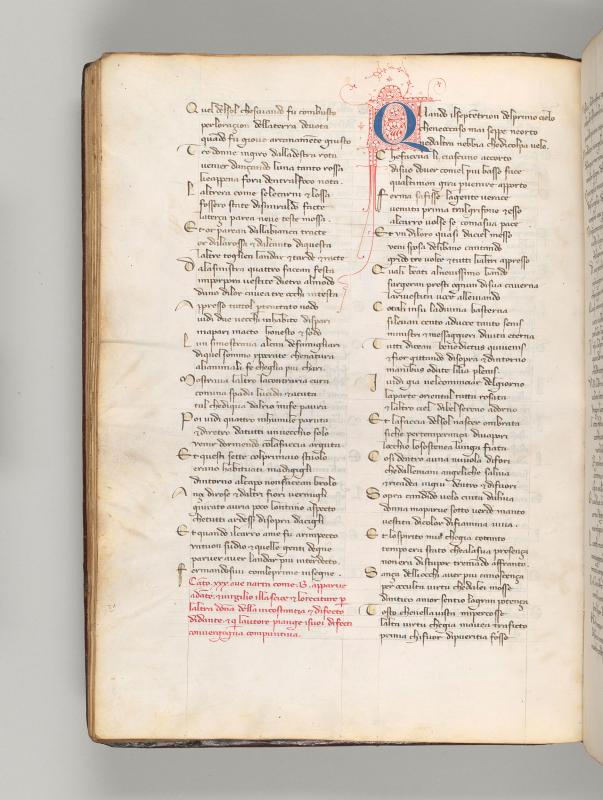 Quel del sol che suiando fu combusto
per loraçion dellaterra deuota
quādo fu gioue arcanamēte giusto
Tre donne ingiro dalladestra rota
uenien dançando luna tanto rossa
cheappena fora dentralfoco nota.
Laltrera come selecarni & lossa
fossero state dismiraldo facte
laterça parea neue teste mossa.
Et or parean dallabianca tracte
or dalarossa & dalcanto diquesta
laltre toglien landar & tarde & racte
Dalasinistra quattro facean festa
inporpora uestite dietro almodo
duna dilor cauea tre occhi intesta
Appresso tuttol pertractato nodo
uidi due uecchi inhabito dispari
mapari inacto honesto & sodo
Lun simostraua alcun defamigliari
diquel sommo ypocrate chenatura
aliaminali fe chegliа piu chari.
Mostraua laltro lacontraria cura
conuna spada lucida & acuta
tal chediqua dalrio mife paura
Poi uidi quattro inhumile paruta
& diretro datutti unuecchio solo
uenir dormendo colafaccia arguta
Et questi sette colprimaio stuolo
erano habituati madigigli
dintorno alcapo nonfacean brolo
Anzi dirose & daltri fiori uermigli
giurato auria poco lontano aspecto
chetutti ardesser disopra dacigli
Et quando ilcarro ame fu arimpecto
untuon sudio & quelle genti degne
paruer auer landar piu interdecto
fermandosiui conleprime insegne.
Cāto .xxx. oue narra come .B. apparue
adāte & uirgilio illascia & lorecitare p
laltra dōna della incostantia & difecto
didante. & q̄ lautore piange isuoi difecti
conuergogna compuntiua.
Quando ilseptētrion delprimo cielo
cheneoccaso mai seppe neorto
nedaltra nebbia chedicolpa uelo.
Che faceua li ciascuno accorto
disuo douer comel piu basso face
qualtimon gira puenire apporto
Ferma saffisse lagente uerace
uenuta prima tralgrifone & esso
alcarro uolse se comasua pace
Et un diloro quasi dacel messo
ueni sposa delibano cantando
grido tre uolte & tutti lialtri appresso
Quali beati alnouissimo bando
surgeran presti ognun disua cauerna
lariuestita uoce alleuiando
Cotali insu ladiuina basterna
sileuan cento aduoce tanto senis
ministri & messaggieri diuita eterna
Tutti dicean benedictus quiuenis
& fior gittando disopra & dintorno
manibus odate lilia plenis.
Iuidi gia nelcominciar delgiorno
laparte oriental tutta rosata
& laltro ciel dalbel sereno adorno
Et lafaccia delsol nascere ombrata
siche pertemperança diuapori
locchio losostenea lunga fiata
Cosi dentro auna nuuola difiori
chedallemani angeliche saliua
& ricadea ingiu dentro & difuori
Sopra candido uelo cinta duliua
donna mapparue sotto uerde manto
uestita dicolor difiamma uiua.
Et lospirito mio chegia cotanto
tempo era stato chealasua presença
non era distupor tremādo affranto.
Sança dellocchi auer piu conoscença
per occulta uirtu chedalei mosse
dantico amor sentio lagran potença
Tosto chenellauista mi percosse
lalta uirtu chegia mauea traficto
prima chifuor dipueritia fosse